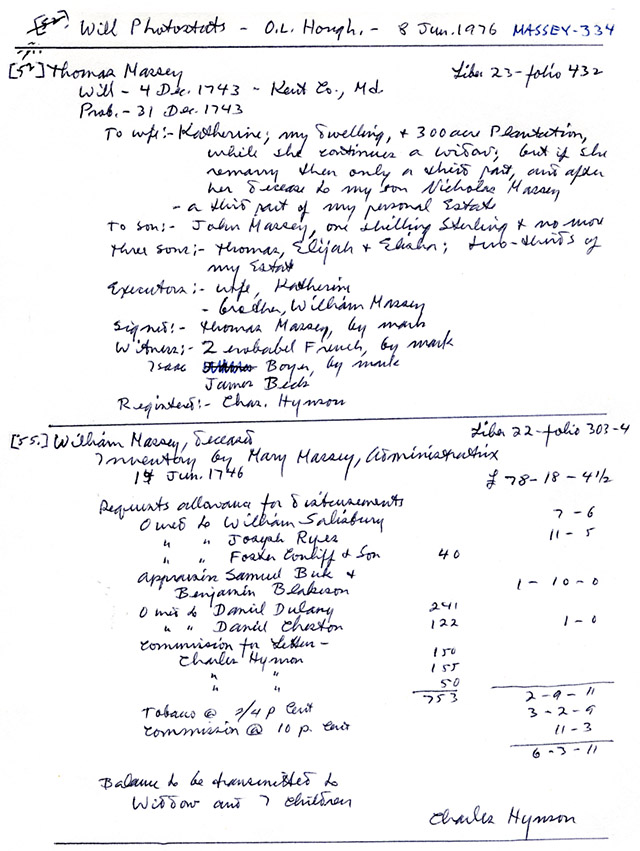 Will Photostats - O.L. Hough. - 8 Jun. 1976 MASSEY-334
[52] Thomas Massey Liber 23-folio 432
Will - 4 Dec. 1743 - Kent Co., Md.
Prob. - 31 Dec. 1743
To wife:- Katherine; my dwelling, + 300 acre Plantation,
while she continues a widow; but if she
remarry then only a third part, and after
her decease to my son Nicholas Massey
- a third part of my personal Estate
To son:- John Massey, one shilling Sterling & no more
three sons:- Thomas, Elijah & Elisha; two-thirds of
my Estate
Executors:- wife, Katherine
- brother, William Massey
Signed:- Thomas Massey, by mark
Witness:- Zerobabel French, by mark
Isaac Boyer, by mark
James Beck
Registered:- Chas. Hynson
[55.] William Massey, deceased Liber 22-folio 303-4
Inventory by Mary Massey, Administratrix
14 Jun. 1746 £ 78-18-4½
Requests allowance for disbursements
Owed to William Salisbury 7-6
" " Joseph Ryes 11-5
" " Foster Cunliff & Son 40
Appraisers Samuel Buk &
Benjamin Blakison 1-10-0
Owed to Daniel Dulany 241
" " Daniel Cheston 122 1-0
Commission for Letter-
Charles Hynson 150
" " 155
" " 50
753 2-9-11
Tobacco @ 2/4 p Cent 3-2-9
Commission @ 10 p. Cent 11-3
6-3-11
Balance to be transmitted to
Widow and 7 children
Charles Hynson